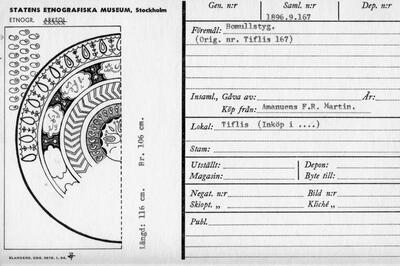 STATENS ETNOGRAFISKA MUSEUM, Stockholm
ETNOGR. ARKEOL
Längd: 116 cm. Br. 106 cm.
ELANDERS, GBG. 2876. 1. 54.
Gen. n:r Saml. n:r Dep. n:r
1896.9.167
Föremål: Bomullstyg.
(Orig. nr. Tiflis 167)
Insaml., Gåva av: År:
Köp från: Amanuens F.R. Martin.
Lokal: Tiflis (Inköp i ....)
Stam:
Utställt: Depon:
Magasin: Byte till:
Negat. n:r Bild n:r
Skiopt. „ Kliché „
Publ.